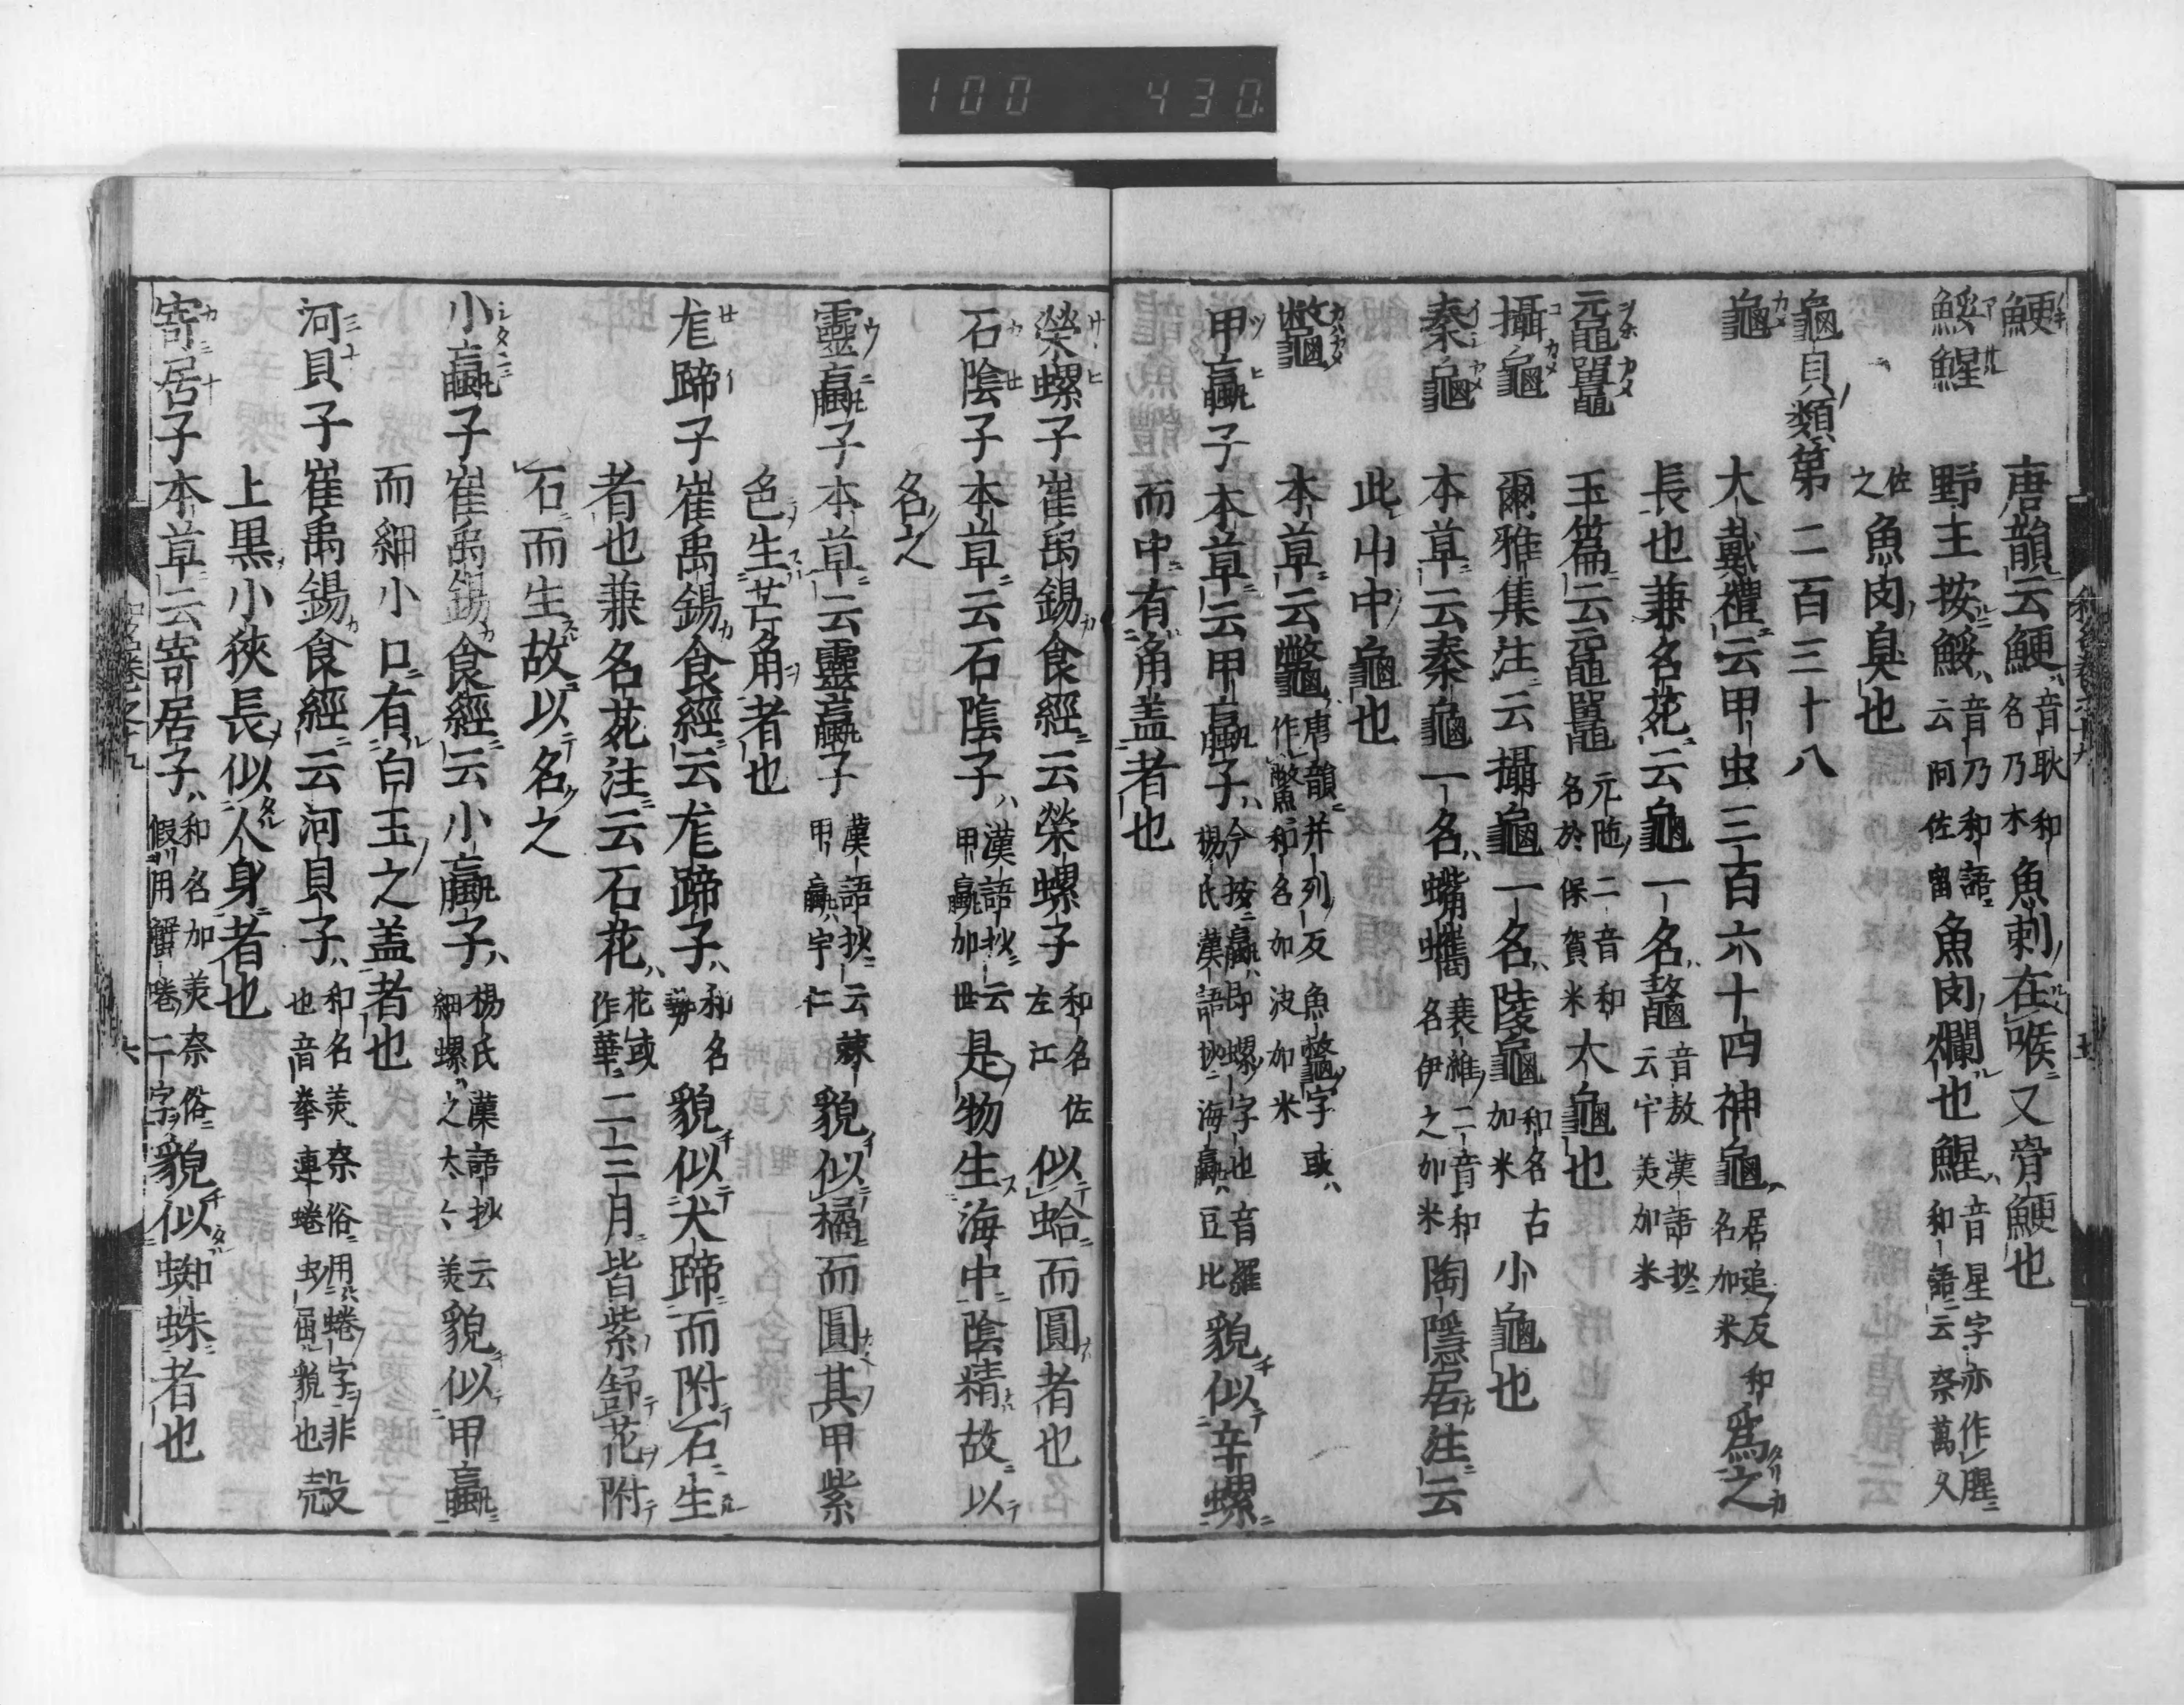 100 430
鯁 唐韻云鯁音耿和名乃木魚刺在喉又骨鯁也
鮾鯹 野王按鮾音乃和語云阿佐留魚肉爛也鯹音星字亦作腥和語云奈萬久
佐之魚肉臭也
龜貝類第二百三十八
龜 大戴禮云甲虫三百六十四神龜居追反和名加米為之
長也兼名苑云龜一名鼇音敖漢語抄云宇美加米
黿鼉 玉篇云黿鼉元陁二音和名於保賀米大龜也
攝龜 爾雅集注云攝龜一名陵龜和名古加米小龜也
秦龜 本草云秦龜一名蠵名伊之加米陶隱居注云
此山中龜也
鼈 本草云鼈唐韻并列反魚鼈字或作鱉和名加波加米
甲蠃子 本草云甲蠃子今按蠃即螺字也音羅楊氏漢語抄海蠃豆比貌似辛螺
而中有角盖者也
榮螺子 崔禹錫食經云榮螺子和名佐左江似蛤而圓者也
石陰子 本草云石陰子漢語抄云甲蠃加世是物生海中陰精故以
名之
靈蠃子 本草云靈蠃子漢語抄云棘甲蠃宇仁貌似橘而圓其甲紫
色生芒角者也
尨蹄子 崔禹錫食經云尨蹄子和名勢貌似犬蹄而附石生
者也兼名苑注云石花花或作華二三月皆紫舒花附
石而生故以名之
小蠃子 崔禹錫食經云小蠃子楊氏漢語抄云細螺之太々美貌似甲蠃
而細小口有白玉之盖者也
河貝子 崔禹錫食經云河貝子和名美奈俗用蜷字非也音拳連蜷虫屈貌也殻
上黒小狹長似人身者也
寄居子 本草云寄居子和名加美奈俗假用蟹蜷二字貌似蜘蛛者也
六